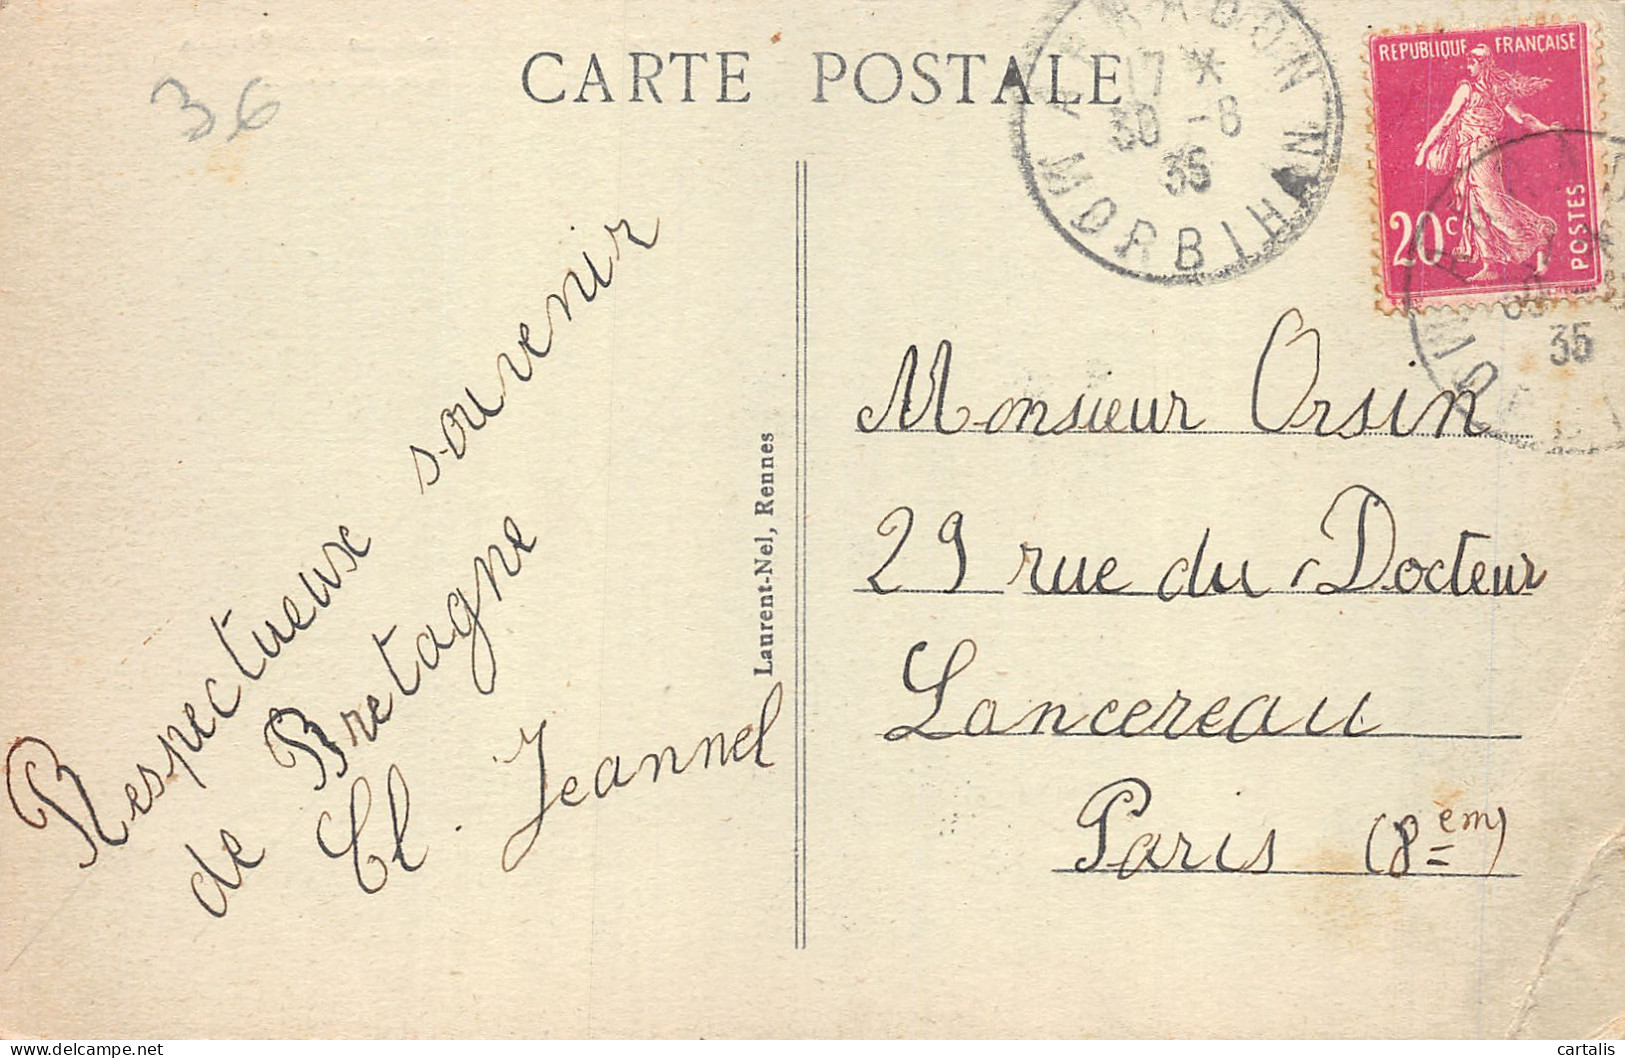 36
CARTE POSTALE
ARRADON
17 *
30 -8
35
MORBIHAN
REPUBLIQUE FRANÇAISE
20c
POSTES
35
Respectueux souvenir
de Bretagne
Cl. Jeannel
Laurent-Nel, Rennes
Monsieur Orsin
29 rue du Docteur
Lancereau
Paris (8em)
cartalis